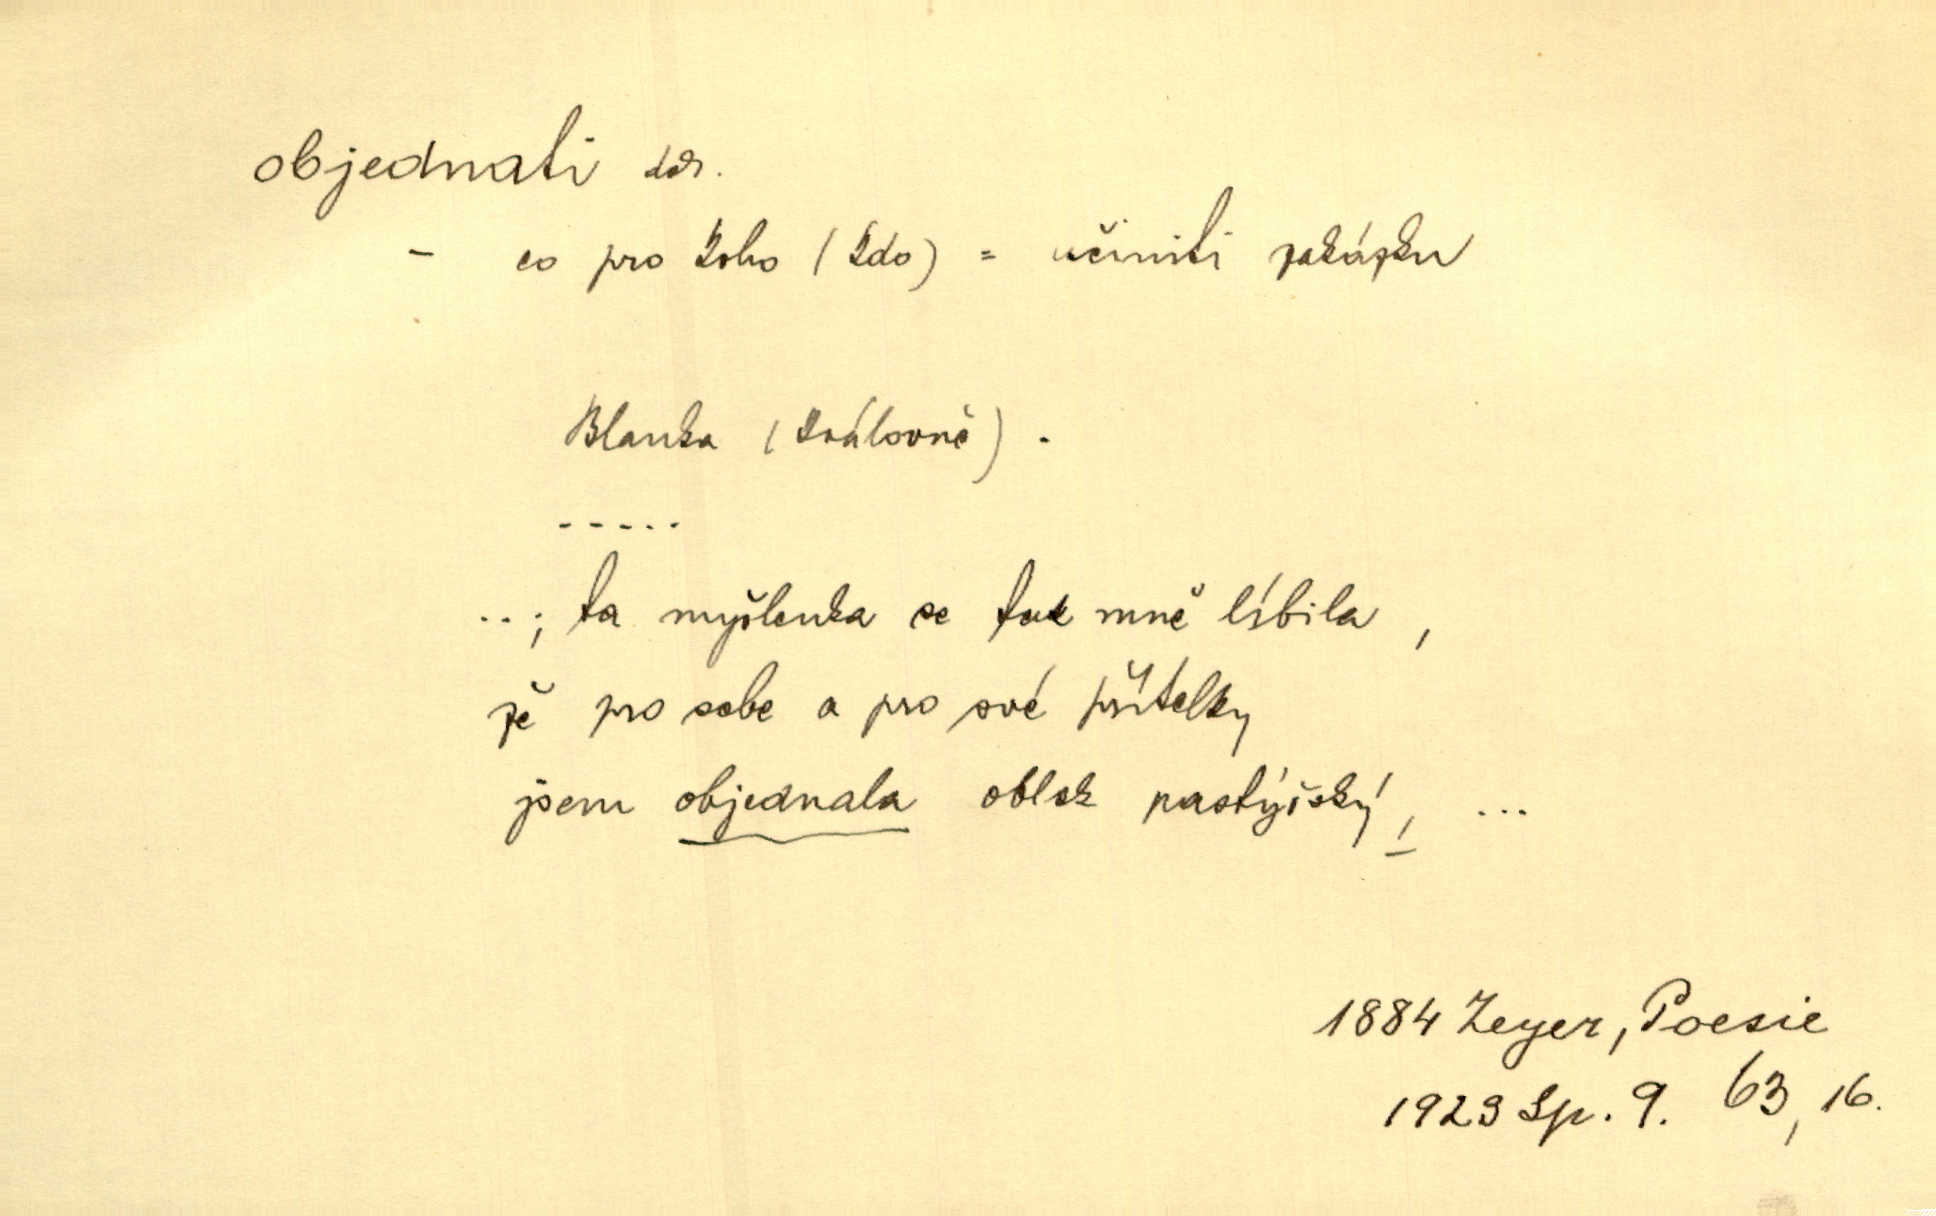 objednati dok.
– co pro koho (kdo) = učiniti zakázku
Blanka (královně).
-----
..; ta myšlenka se tak mně líbila,
že pro sebe a pro své přítelky
jsem objednala oblek pastýřský, ...
1884 Zeyer, Poesie
1923 Sp. 9. 63, 16.